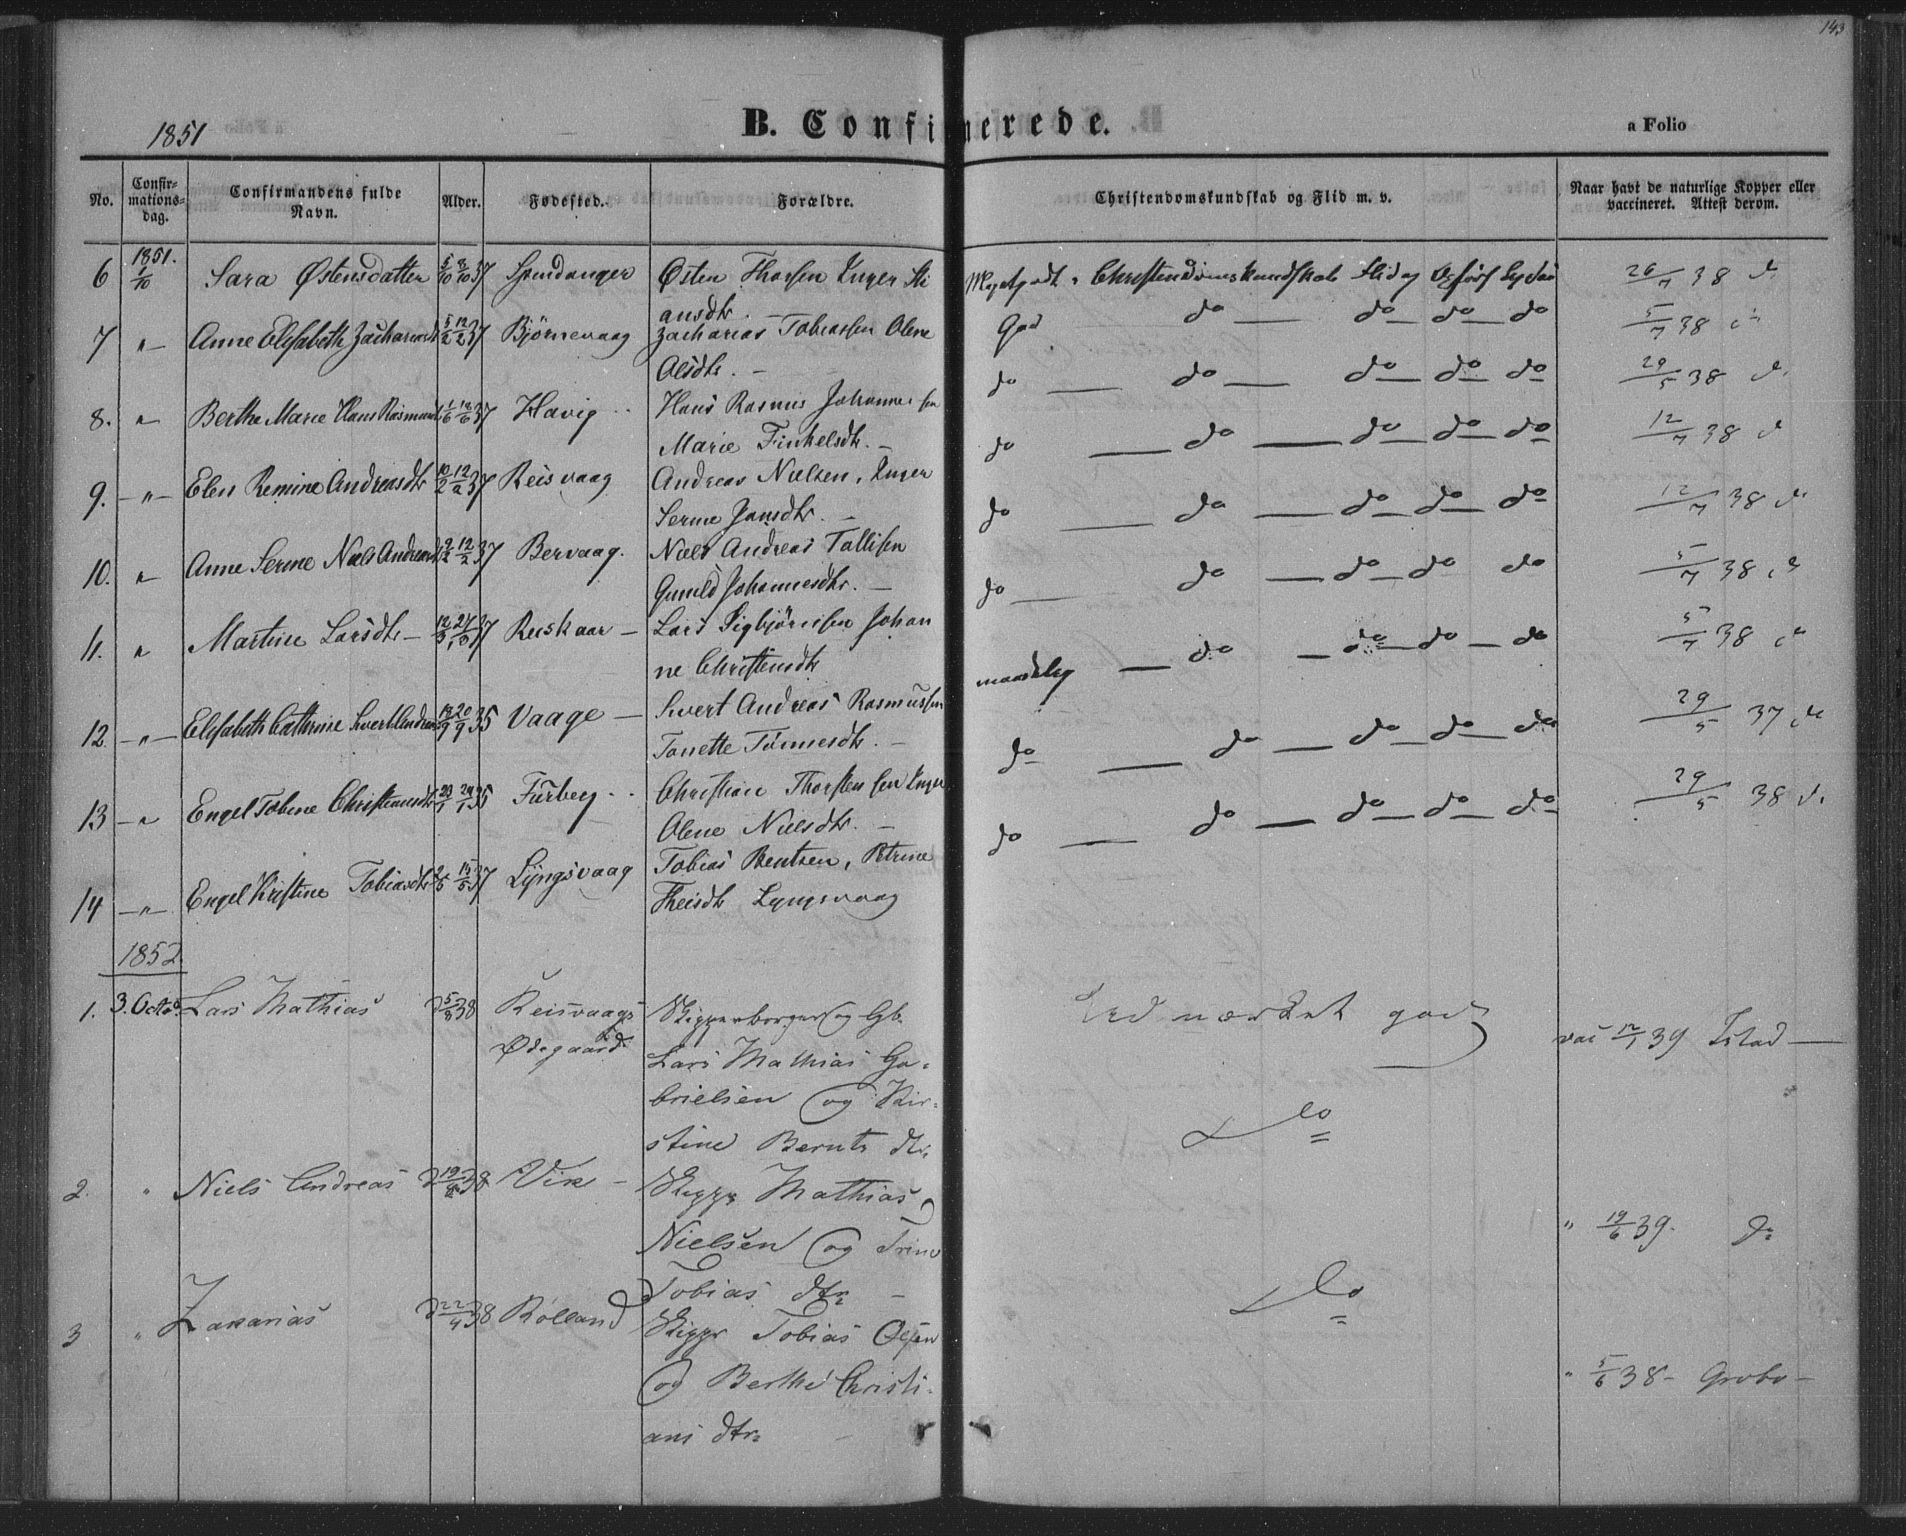 143
1851
B. Confirmerede.
a Folio
No.
Confirmationsdag.
Confirmandens fulde Navn.
Alder.
Fødested.
Forældre.
Christendomskundskab og Flid m. v.
Naar havt de naturlige Kopper eller vaccineret. Attest derom.
6 1851. 1/10 Sara Østensdatter 5/10 8/10 37 Spindanger Østen Thorsen Inger
ansdtr. — Meget godt Christendomskundskab Flid og 26/7 38 do
7 " Anne Elisabeth Zachariasdt 5/2 12/2 37 Bjørnevaag Zacharias Tobiassen Olene
Olsdtr. — God do — do — do — do 5/7 38 do
8. " Berthe Marie Hans Rasmusd 1/6 37 Havig Hans Rasmus Johannessen
Marie Tinkelsdtr. — do — do — do — do — do 29/5 38 do
9. " Elen Remine Andreasdtr 10/2 12/2 37 Reisvaag Andreas Nielsen, Inger
Serine Jansdtr. — do — do — do — do — do 12/7 38 do
10. " Anne Serine Niels Andreasd 9/2 12/2 37 Bervaag. Niels Andreas Tallisen
Gunild Johannesdtr. — do — do — do — do — do 12/7 38 do
11. " Martine Larsdtr — 37 Reiskaar — Lars Sigbjørnsen Johan
ne Christensdtr do — do — do — do do 5/7 38 do
12 " Elisabeth Cathrine Sivert Andreas 13/9 20/9 35 Vaage — Sivert Andreas Rasmussen
Tonette Tønnesdtr. — maadelig — do — do — do — do 5/7 38 do
13 " Engel Tobine Christiansdtr 23/1 29/1 35 Furberg Christian Thorstensen Inger
Olene Nielsdtr. — do — do — do — do — do 29/5 37 do
14 " Engel Kristine Tobiasdtr 15/5 37 Lyngsvaag Tobias Bentsen, Petrine
Theisdtr Lyngsvaag do — do — do — do — do 29/5 38 do
1852.
1. 3. Octob. Lars Mathias d 5/8 38 Reisvaags Skipperborger og Gb.
Ødegaard Lars Mathias Ga-
brielsen og Kir-
stine Bernts dtr.
Udmærket godt
vac 12/1 39 Istad —
do
2. " Niels Andreas d 19/8 38 Vik — Skippr Mathias
Nielsen og Trine
Tobias dtr —
" 19/6 39. do
do
3 " Zakarias d 22/4 38 Rolland Skippr Tobias Olsen
og Berthe Christi-
ans dtr.
" 5/6 38 — Grobo —